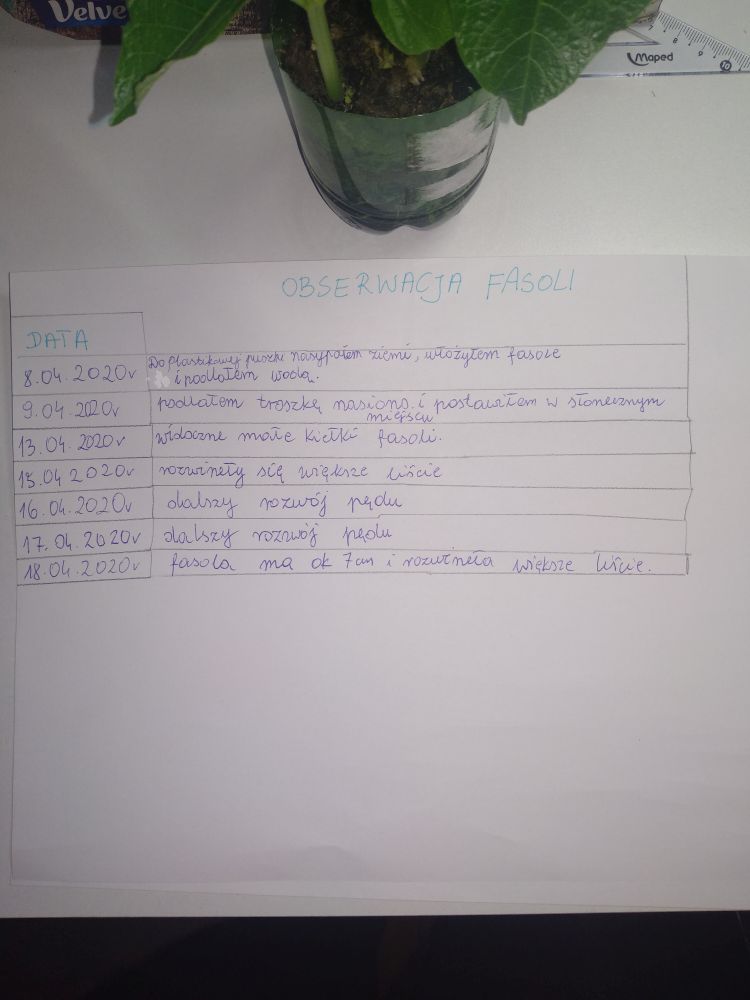 Velve
Maped
7 8 9 10
OBSERWACJA FASOLI
DATA
8.04.2020r Do plastikowej puszki nasypałem ziemi, włożyłem fasole
i podlałem wodą.
9.04.2020r podlałem troszkę nasiono i postawiłem w słonecznym
miejscu
13.04.2020r widoczne małe kiełki fasoli.
15.04.2020r rozwineły się większe liście
16.04.2020r dalszy rozwój pędu
17.04.2020r dalszy rozwój pędu
18.04.2020r fasola ma ok 7cm i rozwineła większe liście.